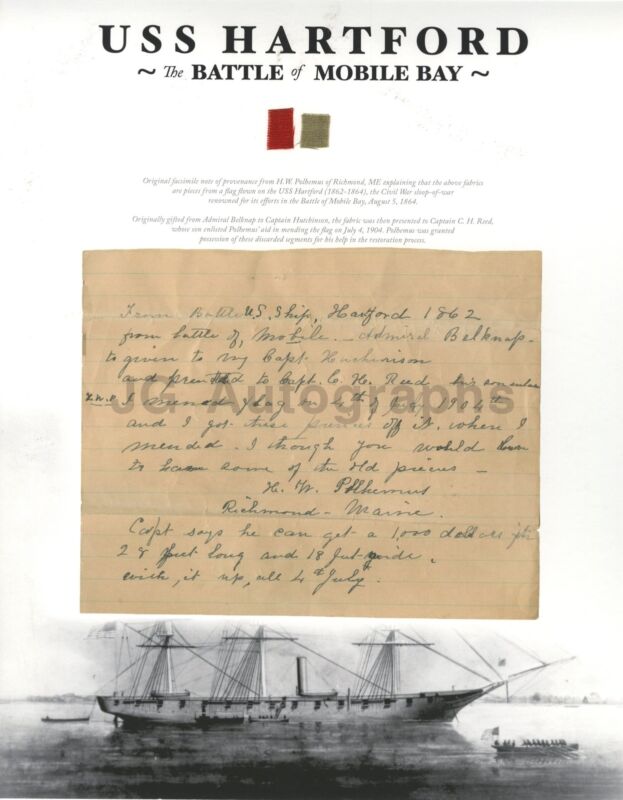 USS HARTFORD
~ The BATTLE of MOBILE BAY ~
Original facsimile note of provenance from H.W. Polhemus of Richmond, ME explaining that the above fabrics
are pieces from a flag flown on the USS Hartford (1862-1864), the Civil War sloop-of-war
renowned for its efforts in the Battle of Mobile Bay, August 5, 1864.
Originally gifted from Admiral Belknap to Captain Hutchinson, the fabric was then presented to Captain C. H. Reed,
whose son enlisted Polhemus' aid in mending the flag on July 4, 1904. Polhemus was granted
possession of these discarded segments for his help in the restoration process.
From Battle U.S. Ship, Hartford 1862
from battle of, Mobile. Admiral Belknap-
to given to my Capt.
and to Capt. C. H. Reed his son
I flag on 4th of July 1904th
and I got these off it. when I
mended. I though you would
to some of the old pieces -
H. W. Polhemus
Richmond - Maine.
Capt says he can get a 1,000 dollars
28 feet long and 18 wide.
it up, all 4th July.
JG Autographs